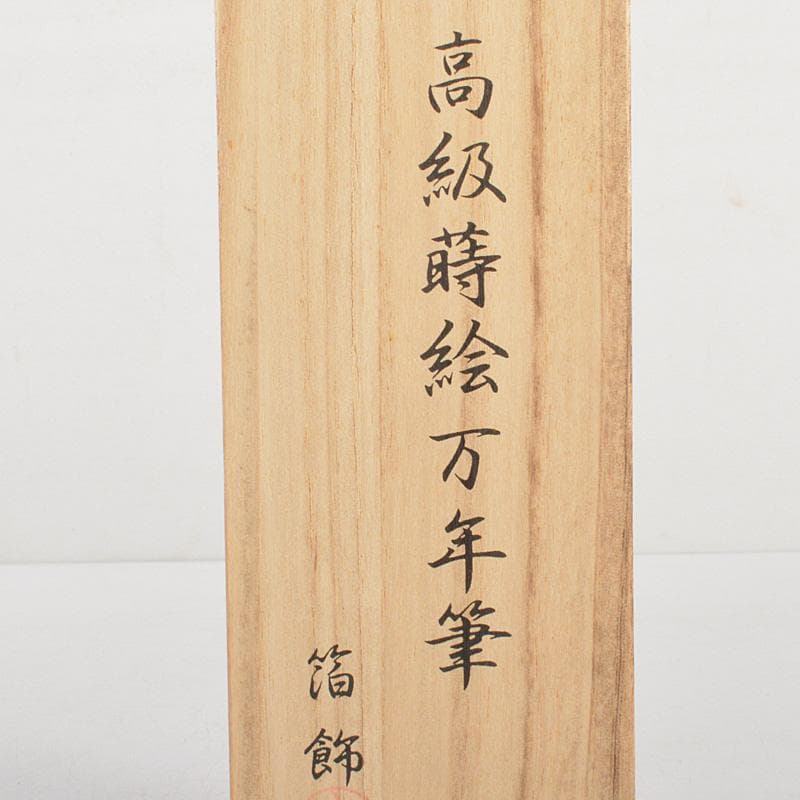 高級蒔絵万年筆
箔飾